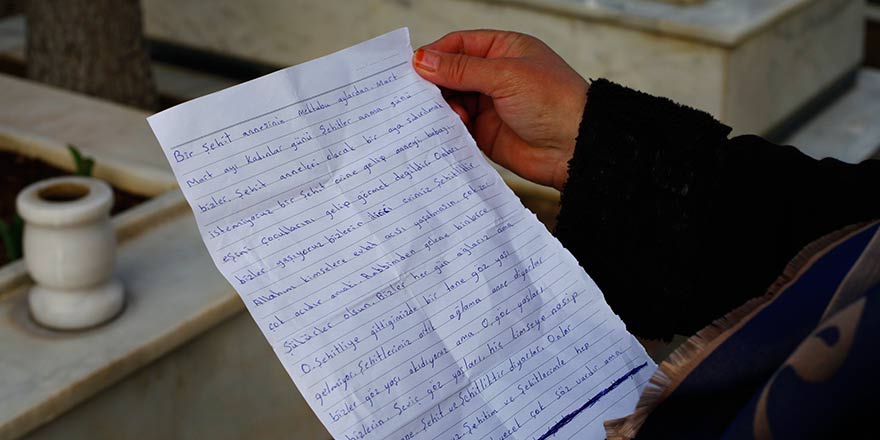 Bir Şehit annesinin mektubu ağlardan. Mart
Mart ayı kadınlar günü Şehitler anma günü
bizler. Şehit anneleri olarak bir aya sıkıştırılmak
istemiyoruz bir Şehit evine gelip anneyi babayı
eşini çocuklarını gelip görmek değildir Onları
bizler yaşıyoruz bizlerin evimiz Şehitliktir
Allahım kimselere evlat acısı yaşatmasın çok zor
çok acıdır ama. Rabbimden gelene binbirce
Şükürler olsun. Bizler her gün ağlarız ama
O. Şehitliye gittiğimizde bir tane göz yaşı
gelmiyor. Şehitlerimiz ağlama anne diyorlar
bizler göz yaşı akıdıyoruz ama O. göz yaşları
bizlerin. Sevinç göz yaşları hiç kimseye nasip
Şehit ve Şehitliktir diyorlar. Onlar
Şehitim ve Şehitlerimle hep
çok söz vardır ama